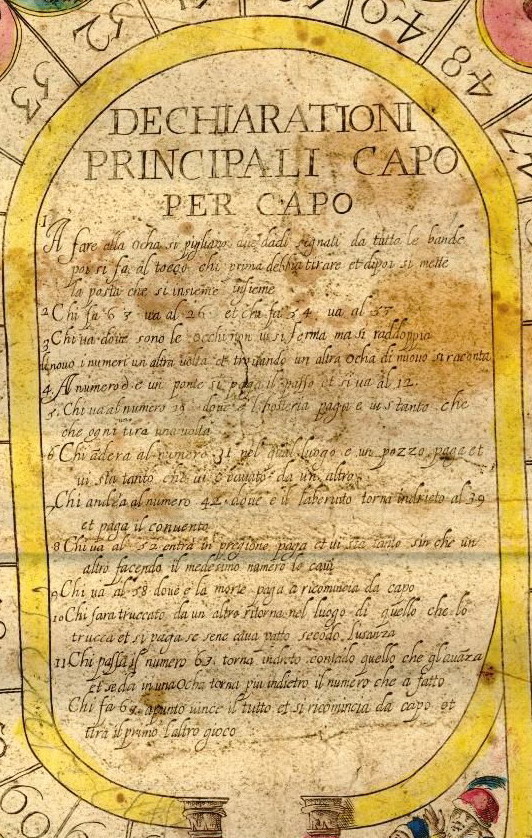 52
53
50
49
48
47
DECHIARATIONI
PRINCIPALI CAPO
PER CAPO
1 A fare alla ocha si pigliano due dadi segnati da tutte le bande
poi si fa al tocco chi prima debbia tirare et dipoi si mette
la posta che si insieme
2 Chi fa 6 3 va al 26 et chi fa 5 4 va al 53
3 Chi va dove sono le occhi non vi si ferma ma si raddoppia
di novo i numeri un altra volta et trovando un altra ocha di nuovo si raconta
4. Al numero 6 e un ponte si paga il passo et si va al 12.
5. Chi va al numero 19 dove e l'hosteria paga e vi s tanto che
che ogni tira una volta
6 Chi andera al numero 31 nel qual luogo e un pozzo paga et
vi sta tanto che vi e cavato da un altro
7 Chi andra al numero 42 dove e il laberinto torna indrieto al 39
et paga il convento
8 Chi va al 52 entra in pregione paga et vi sta tanto sin che un
altro facendo il medesimo numero le cavi
9 Chi va al 58 dove e la morte paga a ricomincia da capo
10 Chi sara truccato da un altro ritorna nel luogo di quello che lo
trucca et si paga se sene cava patto secodo l'usanza
11 Chi passa il numero 63 torna indreto contado quello che gl avaza
et se da in una Ocha torna piu indietro il numero che a fatto
Chi fa 63 apunto vince il tutto et si ricomincia da capo et
tira il primo l'altro gioco
60